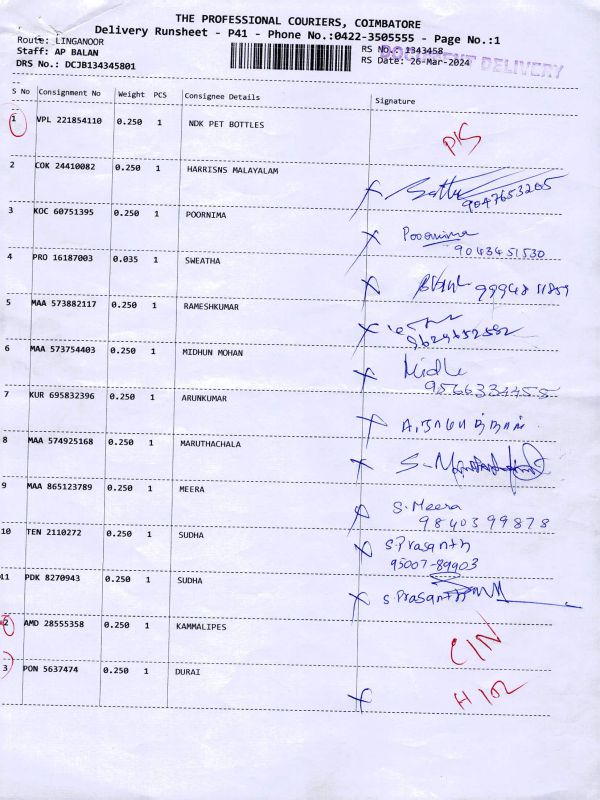 THE PROFESSIONAL COURIERS, COIMBATORE
Delivery Runsheet - P41 - Phone No.:0422-3505555 - Page No.:1
Route: LINGANOOR
Staff: AP BALAN
DRS No.: DCJB134345801
RS No.: 1343458
RS Date: 26-Mar-2024
DOCUMENT DELIVERY
S No Consignment No Weight PCS Consignee Details Signature
1 VPL 221854110 0.250 1 NDK PET BOTTLES
2 COK 24410082 0.250 1 HARRISNS MALAYALAM
9047653205
3 KOC 60751395 0.250 1 POORNIMA Poornima
9043451530
4 PRO 16187003 0.035 1 SWEATHA
5 MAA 573882117 0.250 1 RAMESHKUMAR
6 MAA 573754403 0.250 1 MIDHUN MOHAN
7 KUR 695832396 0.250 1 ARUNKUMAR
8 MAA 574925168 0.250 1 MARUTHACHALA
9 MAA 865123789 0.250 1 MEERA S. Meera
9840399878
10 TEN 2110272 0.250 1 SUDHA S.Prasanth
95007-89903
11 PDK 8270943 0.250 1 SUDHA S.Prasanth
2 AMD 28555358 0.250 1 KAMMALIPES
3 PON 5637474 0.250 1 DURAI